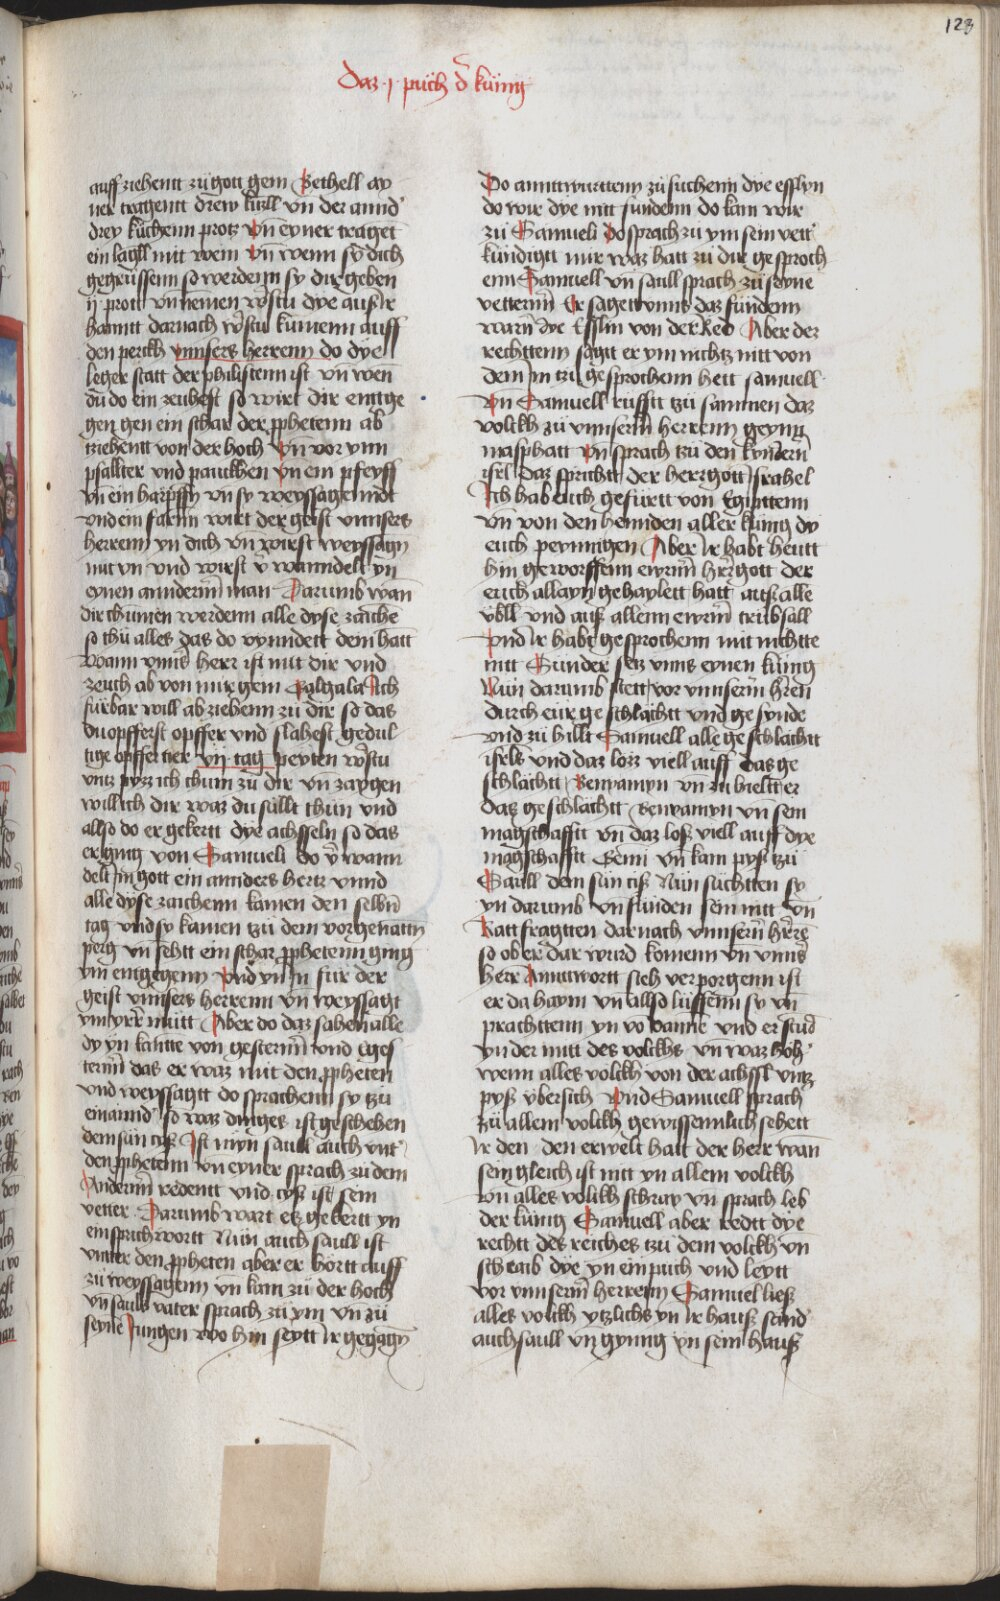 123
Daz ·j· puͤch d̕ kuͤnig
auff ziehentt zu gott gem Bethell ay
ner tragentt drew kitzll vn̄ der annd̕
drey kuͤchenn protz vn̄ eyner traget
ein lagll mit wein vn̄ wenn sy dich
gegruͤssenn so werdenn sy dir geben
ij prott vn̄ nemen wirstu dye auß ir
hanntt darnach wirstu kumenn auff
den perckh vnnsers herrenn do dye
leger statt der philistenn ist vn̄ wen̄
du do ein zeuhest so wirt dir entge
gen gen ein schar der ꝓpheten ab
tziehentt von der hoch vn̄ vor ynn
psallter vnd pauckhen vn̄ ein pfeyff
vn̄ ein harpffn vn̄ sy weyssagenndt
vnd ein farnn wirt der geist vnnsers
herrenn yn dich vn̄ wirst weyssagn̄
mit yn vnd wirst v̕wanndelt yn
eynen annderm̄ man Darumb wan̄
dir chumen werdenn alle dyse zaichē
so thu alles das do vynndett dein hatt
Wann vnns herr ist mit dir vnd
zeuch ab von mir gem Galgala Ich
fuͤrbar will ab ziehenn zu dir so das
du opfferst opffer vnd slahest gedul
tige opffer tier vij tag peyten wirstu
vntz pyzz ich chum zu dir vn̄ zaygen
will ich dir waz du sullt thun vnd
allso do er gekertt dye achsseln so das
er ging von Samueli do v̕wann
delt Im gott ein annders hertz vnnd
alle dyse zaichenn kamen den selbn̄
tag vnd sy kamen tzu dem vorgenattn̄
perg vn̄ sehtt ein schar ꝓphetenn ging
ym entgegenn vnd yn In fuͤr der
geist vnnsers herrenn vn̄ weyssagt
ynn yrr̄ mitt Aber do daz sahen alle
dy yn kantte von gesterm̄ vnd eges
term̄ das er waz mit den ꝓpheten
vnd weyssagtt do sprachenn sy tzu
einannd̕ so waz dinges ist geschehen
dem sun ciß Ist nyn saull auch vnt̕
den ꝓphetenn vn̄ eyner sprach zu dem
Anderm̄ redentt vnd cyß ist sein
vetter Darumb wart etz gekertt yn
ein sprichwortt Nun auch saull ist
vnnter den ꝓpheten aber er hortt auff
zu weyssagenn vn̄ kam zu der hoch
vn̄ saulls vater sprach zu ym vn̄ zu
seynē Jungen wo hin seytt Ir gegagn̄
Do anntwurttenn zu suchenn dye esslyn
do wir dye nitt fundenn do kam wir
zu Samueli Do sprach zu ym sein vett̕
kundigtt mir waz hatt zu dir gesproch
enn Samuell vn̄ saull sprach zu seyne
vetterm̄ Er sagett vnns daz fundenn
warn̄ dye Esslin von der Red Aber der
rechttenn sagtt er ym nichtz nitt von
dem Im tzu gesprochenn hett samuell
vn̄ Samuell ruͤfftt tzu sammen daz
volckh zu vnnserm̄ herrenn geynn
masphatt vn̄ sprach tzu den kyndern̄
isrl daz sprichtt der herr gott Israhel
Ich hab euch gefurtt von Egipttenn
vn̄ von den hennden aller kunig dy
euch peynnigen Aber Ir habt heutt
hin geworffenn ewrm̄ hr̄r gott der
euch allayn gehaylett hatt auß alle
vbll vnd auß allenn ewrm̄ truͤbsall
vnd Ir habt gesprochenn mit nichtte
nitt Sunder setz vnns eynen kunig
Nun darumb stett vor vnnserm̄ hr̄en
durch eur geschlachtt vnd gesynde
vnd zu hillt Samuell alle geschlachtt
isrls vnd daz lozz viell auff das ge
schlachtt Benyamyn vn̄ zu hieltt er
das geschlachtt Benyamyn vn̄ sein
magschafftt vn̄ daz loß viell auff dye
magschafftt Semi vn̄ kam pyß tzu
Saull dem sun ciß Nun suchtten sy
yn darumb vn̄ funden sein nitt vn̄
Ratt fragtten dar nach vnnserm̄ hr̄rē
so ob er dar wurd komenn vn̄ vnns̕
herr Anntwortt sich verporgenn ist
er da haym vn̄ allso luͤffenn sy vn̄
prachttenn yn vō danne vnd er stūd
yn der mitt des volckhs vn̄ waz hoh̕
wenn alles volckh von der achssl vntz
pyß vbersich Vnd Samuell sprach
zu allem volckh gewissennlich sehett
Ir den den erwelt hatt der herr wan̄
sein gleich ist nitt yn allem volckh
vn̄ alles volckh schray vn̄ sprach leb
der kunig Samuell aber redtt dye
rechtt des reiches tzu dem volckh vn̄
schraib dye yn ein puch vnd leytt
vor vnnserm̄ herrenn Samuel ließ
alles volckh ytzlichs yn Ir hauß sand̕
auch saull vn̄ gynng yn sein hauß